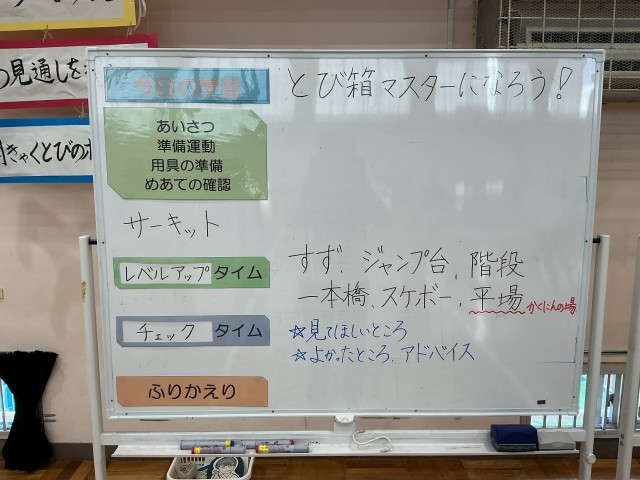 つ見通しを
今日の学習
とび箱マスターになろう!
あいさつ
準備運動
用具の準備
めあての確認
サーキット
レベルアップタイム
すず、ジャンプ台、階段
一本橋、スケボー、平場 かくにんの場
チェックタイム
☆見てほしいところ
☆よかったところ、アドバイス
ふりかえり